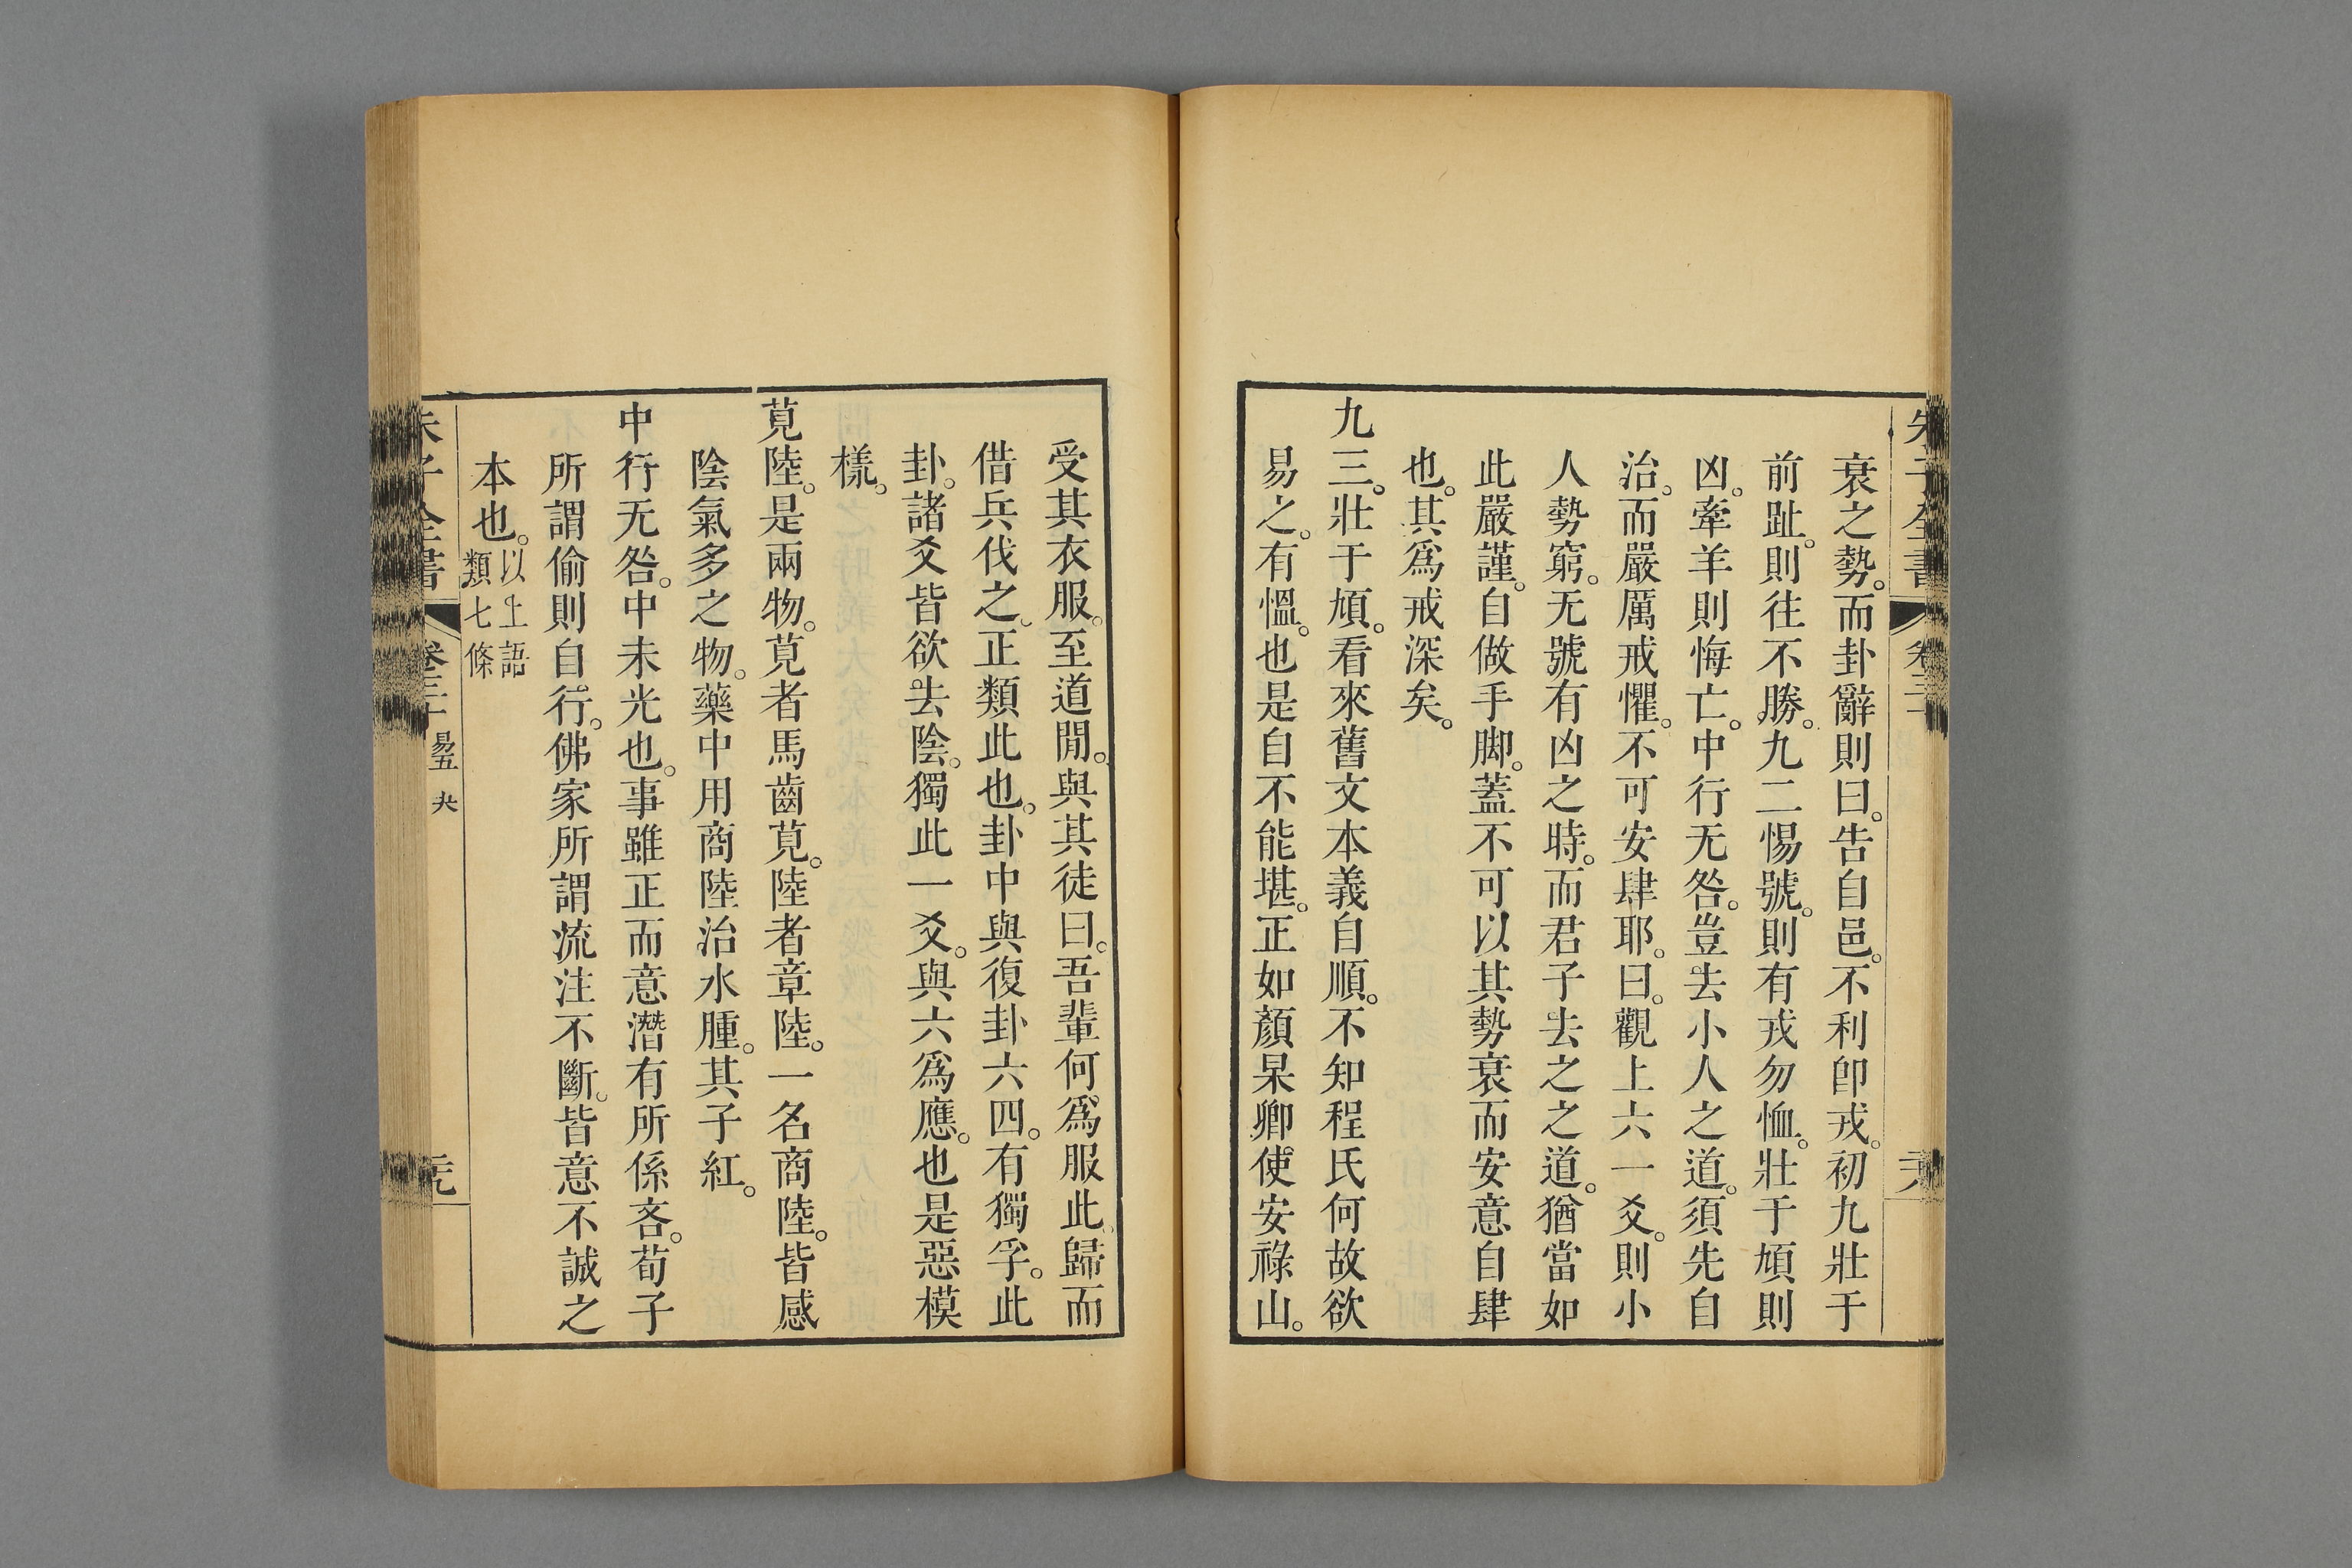 衰之勢。而卦辭則曰。告自邑。不利卽戎。初九壯于
前趾。則往不勝。九二惕號。則有戎勿恤。壯于頄則
凶。牽羊則悔亡。中行无咎。豈去小人之道。須先自
治。而嚴厲戒懼。不可安肆耶。曰。觀上六一爻。則小
人勢窮。无號有凶之時。而君子去之之道。猶當如
此嚴謹。自做手脚。蓋不可以其勢衰而安意自肆
也。其爲戒深矣。
九三。壯于頄。看來舊文本義自順。不知程氏何故欲
易之。有慍。也是自不能堪。正如顏杲卿使安祿山。
受其衣服。至道閒。與其徒曰。吾輩何爲服此。歸而
借兵伐之。正類此也。卦中與復卦六四。有獨孚。此
卦。諸爻皆欲去陰。獨此一爻。與六爲應。也是惡模
樣。
莧陸。是兩物。莧者馬齒莧。陸者章陸。一名商陸。皆感
陰氣多之物。藥中用商陸治水腫。其子紅。
中行无咎。中未光也。事雖正而意潛有所係吝。荀子
所謂偷則自行。佛家所謂流注不斷。皆意不誠之
本也。以上語
類七條
朱子全書
卷三十
易五 夬